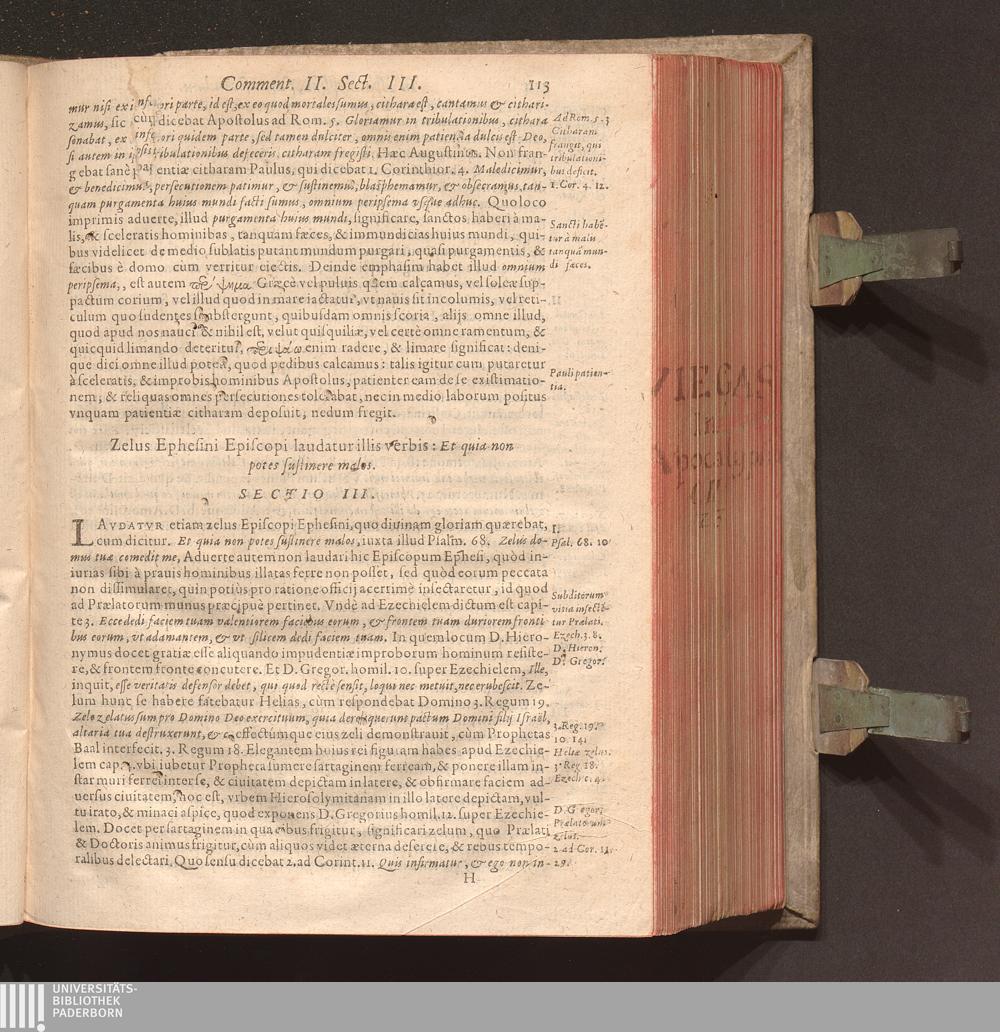 Comment. II. Sect. III. 113
mur nisi ex inferiori parte, id est, ex eo quod mortales sumus, cithara est, cantamus & cithari-
zamus, sic cùm dicebat Apostolus ad Rom. 5. Gloriamur in tribulationibus, cithara
sonabat, ex inferiori quidem parte, sed tamen dulciter, omnis enim patientia dulcis est Deo,
si autem in ipsis tribulationibus defeceris citharam fregisti. Hæc Augustinus. Non fran-
gebat sanè patientiæ citharam Paulus, qui dicebat 1. Corinthior. 4. Maledicimur,
& benedicimus, persecutionem patimur, & sustinemus, blasphemamur, & obsecramus, tan-
quam purgamenta huius mundi facti sumus, omnium peripsema vsque adhuc. Quo loco
imprimis aduerte, illud purgamenta huius mundi, significare, sanctos haberi à ma-
lis, & sceleratis hominibus, tanquam fæces, & immundicias huius mundi, qui-
bus videlicet de medio sublatis putant mundum purgari, quasi purgamentis, &
fæcibus è domo cum verritur eiectis. Deinde emphasim habet illud omnium
peripsema,, est autem περίψημα Græcè vel puluis quem calcamus, vel soleæ sup-
pactum corium, vel illud quod in mare iactatur, vt nauis sit incolumis, vel reti-
culum quo sudentes se abstergunt, quibusdam omnis scoria, alijs omne illud,
quod apud nos nauci & nihil est, velut quisquiliæ, vel certè omne ramentum, &
quicquid limando deteritur, περιψάω enim radere, & limare significat: deni-
que dici omne illud potest, quod pedibus calcamus: talis igitur cum putaretur
à sceleratis, & improbis hominibus Apostolus, patienter eam de se existimatio-
nem, & reliquas omnes persecutiones tolerabat, nec in medio laborum positus
vnquam patientiæ citharam deposuit, nedum fregit.
Ad Rom. 5. 3
Citharam
frangit, qui
tribulationi-
bus deficit.
1. Cor. 4. 12.
Sancti habē-
tur à malis
tanquā mun-
di fæces.
Pauli patien-
tia.
Zelus Ephesini Episcopi laudatur illis verbis: Et quia non
potes sustinere malos.
SECTIO III.
LAVDATVR etiam zelus Episcopi Ephesini, quo diuinam gloriam quærebat,
cum dicitur. Et quia non potes sustinere malos, iuxta illud Psalm. 68. Zelus do-
mus tuæ comedit me, Aduerte autem non laudari hic Episcopum Ephesi, quòd in-
iurias sibi à prauis hominibus illatas ferre non posset, sed quòd eorum peccata
non dissimularet, quin potius pro ratione officij acerrime insectaretur, id quod
ad Prælatorum munus præcipuè pertinet. Vndè ad Ezechielem dictum est capi-
te 3. Ecce dedi faciem tuam valentiorem faciebus eorum, & frontem tuam duriorem fronti
bus eorum, vt adamantem, & vt silicem dedi faciem tuam. In quem locum D. Hiero-
nymus docet gratiæ esse aliquando impudentiæ improborum hominum resiste-
re, & frontem fronte concutere. Et D. Gregor. homil. 10. super Ezechielem, Ille,
inquit, esse veritatis defensor debet, qui quod rectè sensit, loqui nec metuit, nec erubescit. Ze-
lum hunc se habere fatebatur Helias, cùm respondebat Domino 3. Regum 19.
Zelo zelatus sum pro Domino Deo exercituum, quia dereliquerunt pactum Domini filij Israël,
altaria tua destruxerunt, &c. effectúmque eius zeli demonstrauit, cùm Prophetas
Baal interfecit. 3. Regum 18. Elegantem huius rei figuram habes apud Ezechie-
lem cap. 4. vbi iubetur Propheta sumere sartaginem ferream, & ponere illam in-
star muri ferrei inter se, & ciuitatem depictam in latere, & obfirmare faciem ad-
uersus ciuitatem, hoc est, vrbem Hierosolymitanam in illo latere depictam, vul-
tu irato, & minaci aspice, quod exponens D. Gregorius homil. 12. super Ezechie-
lem. Docet per sartaginem in qua cibus frigitur, significari zelum, quo Prælati
& Doctoris animus frigitur, cùm aliquos videt æterna deserere, & rebus tempo-
ralibus delectari. Quo sensu dicebat 2. ad Corint. 11. Quis infirmatur, & ego non in-
H
I.
Psal. 68. 10
Subditorum
vitia insectē-
tur Prælati.
Ezech. 3. 8.
D. Hieron.
D. Gregor.
3. Reg. 19.
10. 14.
Heliæ zelus.
3. Reg. 18.
Ezech. c. 4.
D. Gregor.
Prælatorum
zelus.
2. ad Cor. 11.
29.
VIEGAS
In
Apocalipsin
UNIVERSITÄTS-
BIBLIOTHEK
PADERBORN